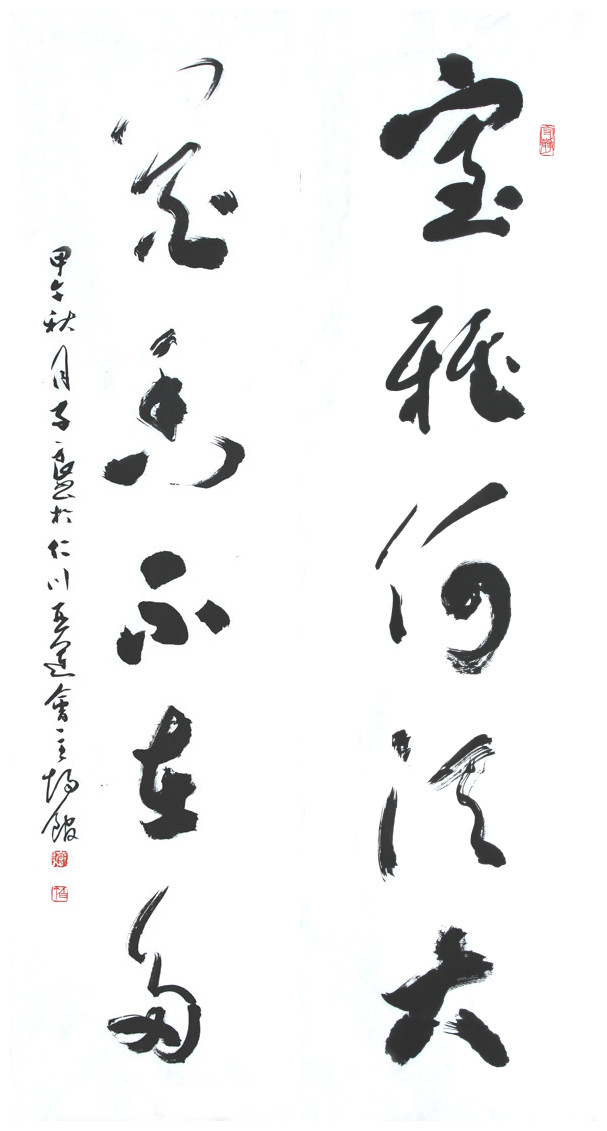 室雅何須大
花香不在多
甲午秋月於仁川亞運會主場館